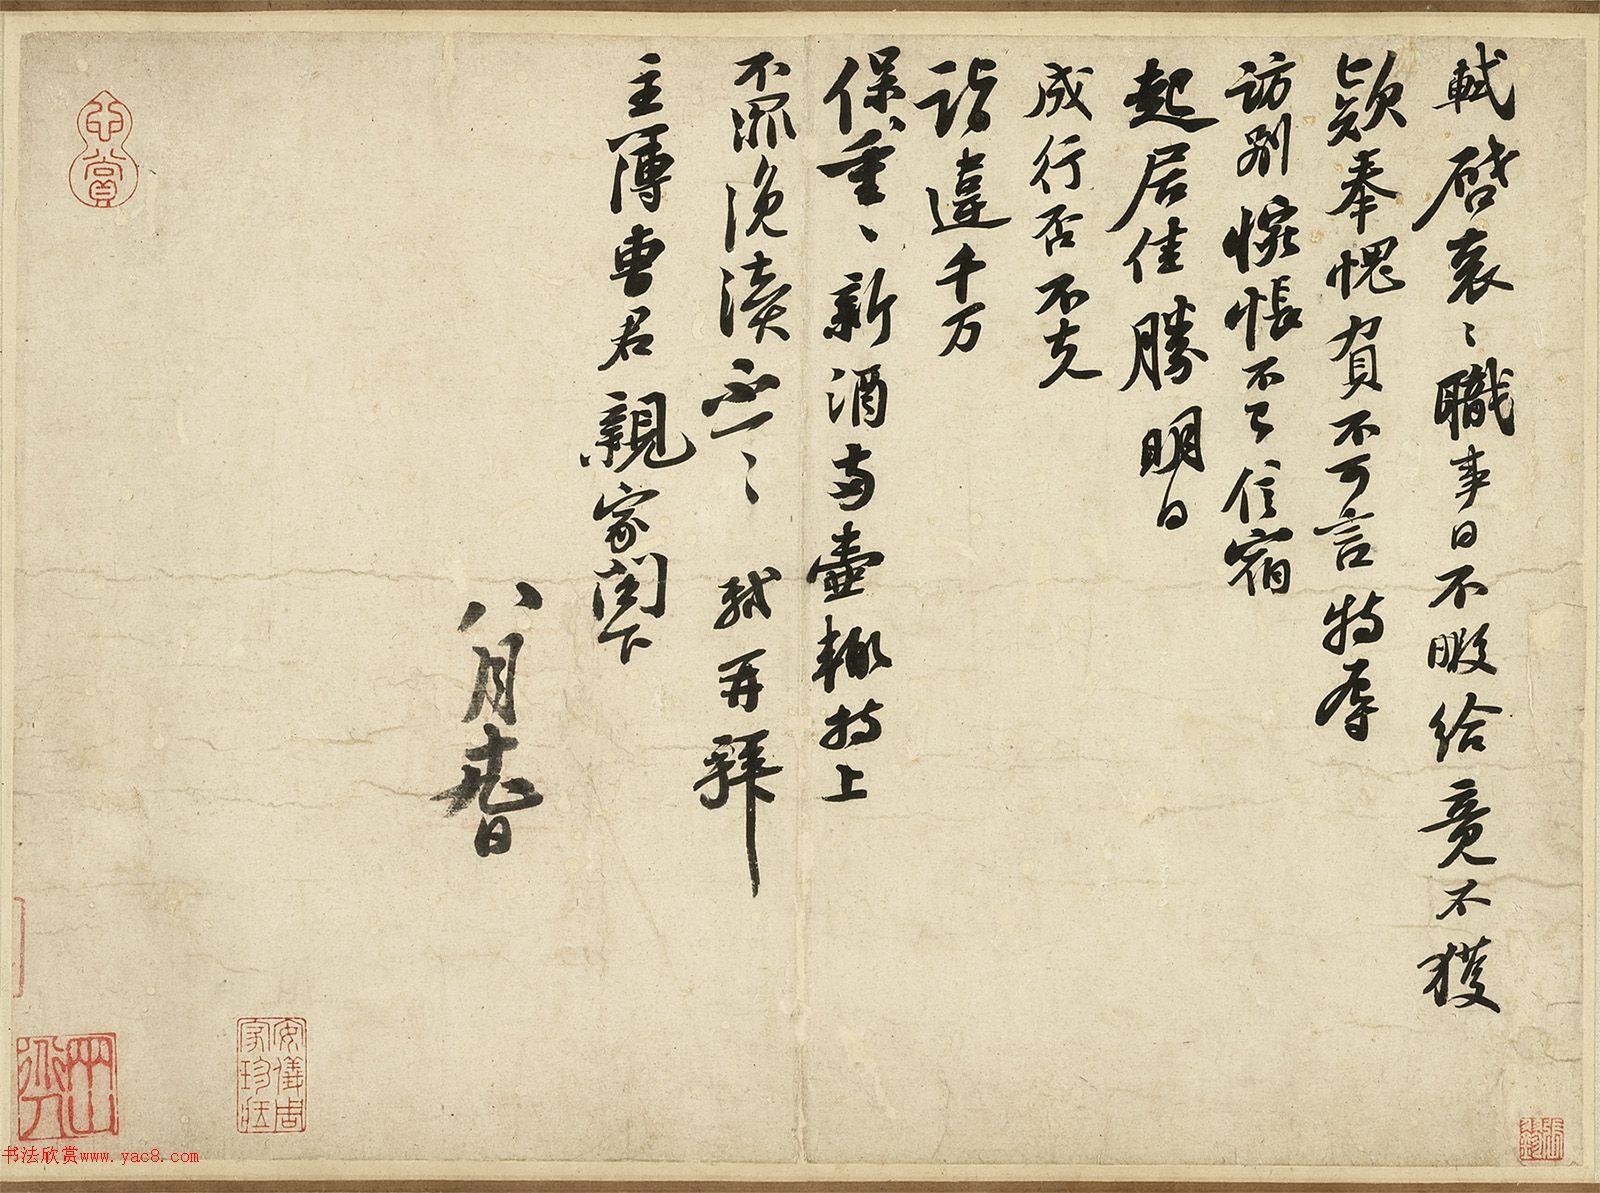 軾啓衮〻職事日不暇給竟不獲
款奉愧負不可言特辱
訪别惋悵不已信宿
起居佳勝明日
成行否不克
詣違千万
保重〻新酒兩壺輒持上
不罪浼瀆不一〻軾再拜
主簿曹君親家閣下
八月日
心賞
安儀周家珍藏
书法欣赏www.yac8.com